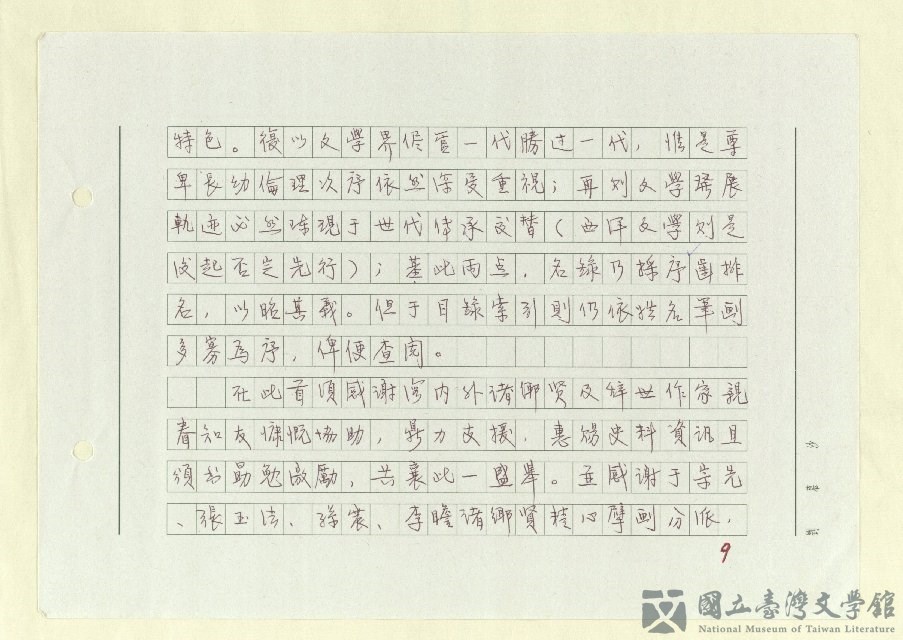 特色。復以文學界儘管一代勝过一代，惟是尊
卑長幼倫理次序依然深受重視；再则文學發展
軌迹必然体現于世代传承交替（西洋文學则是
后起否定先行）；基此两点，名錄乃採序齒排
名，以昭其義。但于目錄索引則仍依姓名筆画
多寡為序，俾便查阅。
在此首須感谢海内外诸鄉贤及辞世作家親
眷知友慷慨協助，鼎力支援，惠赐史料資訊且
頒书勗勉激勵，共襄此一盛舉。並感谢于宗先
、張玉法、孫震、李瞻诸鄉贤精心擘画分派，
9
國立臺灣文學館
National Museum of Taiwan Literature